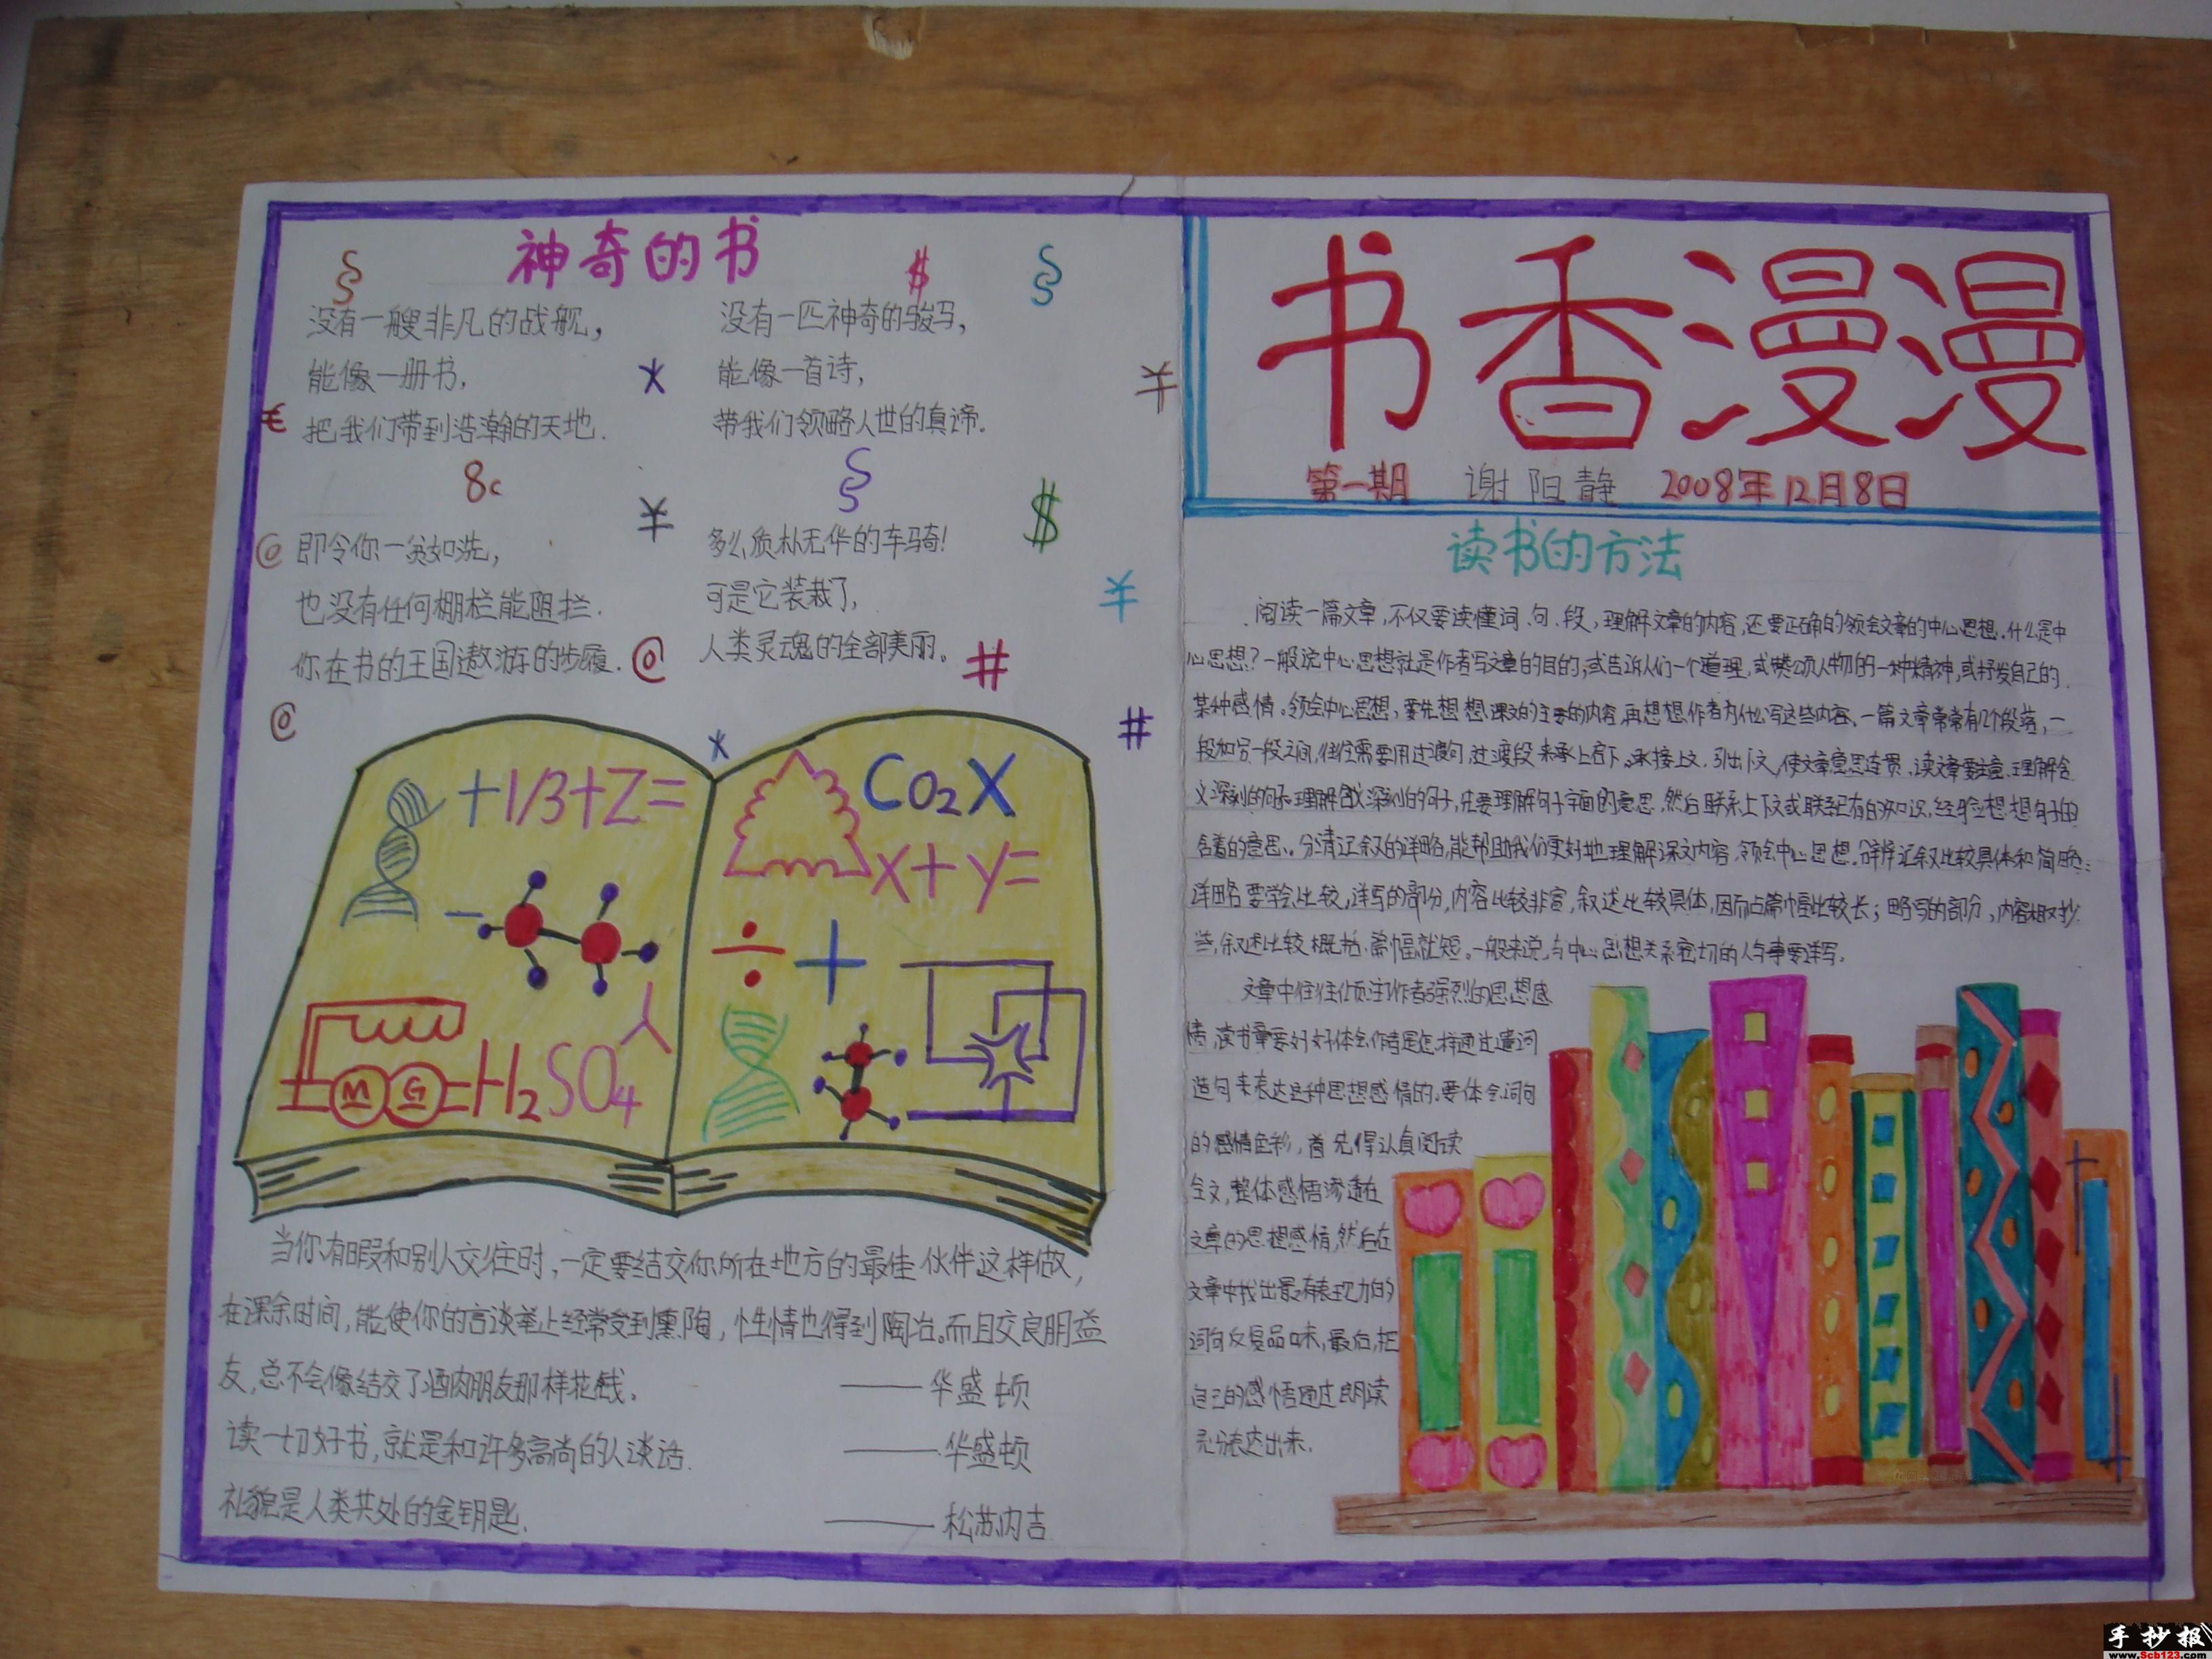 神奇的书
没有一艘非凡的战舰，
能像一册书，
把我们带到浩瀚的天地．
没有一匹神奇的骏马，
能像一首诗，
带我们领略人世的真谛。
8c
即令你一贫如洗，
也没有任何栅栏能阻拦．
你在书的王国遨游的步履．
多么质朴无华的车骑！
可是它装载了，
人类灵魂的全部美丽。
+1/3+Z=
H₂SO₄
M G
CO₂X
X+y=
÷ +
当你有暇和别人交往时，一定要结交你所在地方的最佳伙伴这样做，
在课余时间，能使你的言谈举止经常受到熏陶，性情也得到陶冶。而且交良朋益
友，总不会像结交了酒肉朋友那样花钱．
——华盛顿
读一切好书，就是和许多高尚的人谈话．
——华盛顿
礼貌是人类共处的金钥匙．
——松苏内吉
书香漫漫
第一期 谢阳静 2008年12月8日
读书的方法
阅读一篇文章，不仅要读懂词、句、段，理解文章的内容，还要正确的领会文章的中心思想．什么是中
心思想？一般说中心思想就是作者写文章的目的；或告诉人们一个道理，或赞颂人物的一种精神，或抒发自己的
某种感情。领会中心思想，要先想想课文的主要的内容，再想想作者为什么写这些内容、一篇文章常常有几个段落，一
段和另一段之间，往往需要用过渡句，过渡段来承上启下。承接上文，引出下文，使文章意思连贯．读文章要注意理解含
义深刻的句子理解含义深刻的句子，先要理解句子字面的意思．然后联系上下文或联系已有的知识，经验想想句子的
含着的意思．分清记叙的详略，能帮助我们更好地理解课文内容．领会中心思想．详记叙比较具体和简略：
详略要学会比较，详写的部分，内容比较非富，叙述比较具体，因而占篇幅比较长；略写的部分，内容相对抄
些，叙述比较概括，篇幅就短。一般来说，与中心思想关系密切的人与事要详写．
文章中往往倾注作者强烈的思想感
情，读书章要好好体会作者是怎样通过遣词
造句来表达这种思想感情的．要体会词句
的感情色彩，首先得认真阅读
全文，整体感悟渗透在
文章的思想感情，然后在
文章中找出最有表现力的
词句反复品味，最后，把
自己的感悟通过朗读
充分表达出来．
手抄报
www.Scb123.com